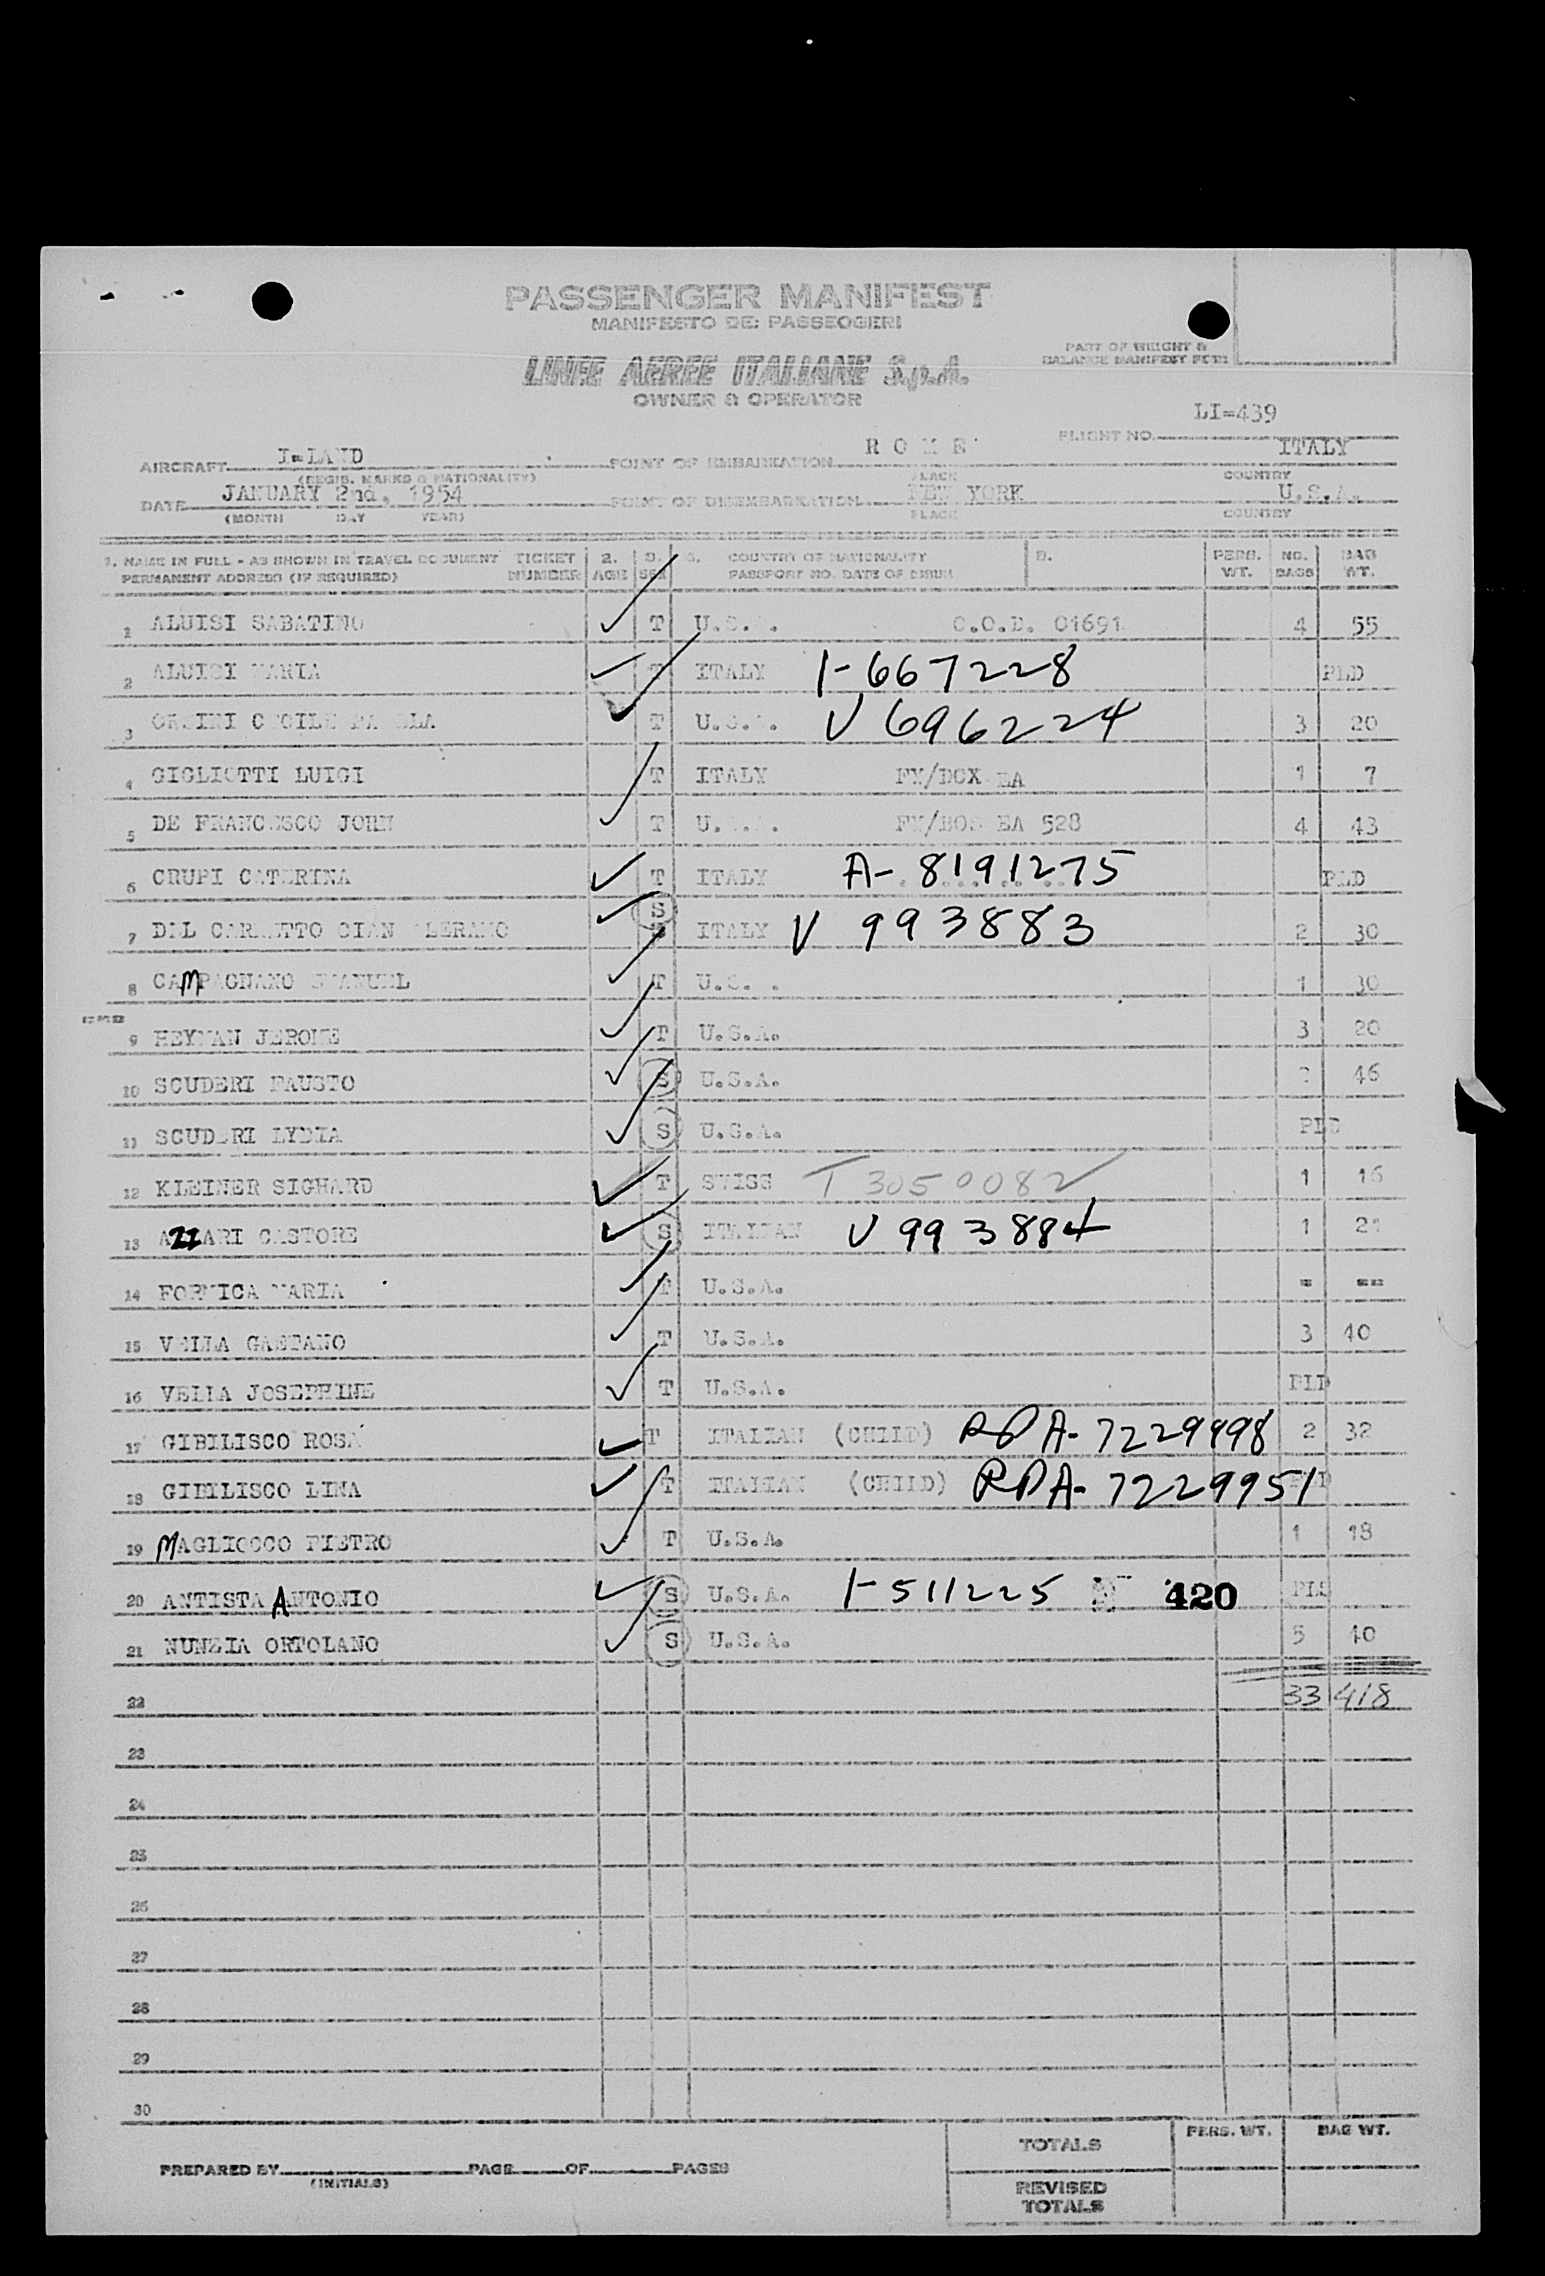 PASSENGER MANIFEST
MANIFESTO DEI PASSEGGERI
LINEE AEREE ITALIANE S.p.A.
OWNER & OPERATOR
PART OF WEIGHT &
BALANCE MANIFEST
LI-439
FLIGHT NO.
AIRCRAFT I-LAND POINT OF EMBARKATION R O M E ITALY
(REGIS. MARKS & NATIONALITY) PLACE COUNTRY
DATE JANUARY 2nd, 1954 POINT OF DISEMBARKATION NEW YORK U.S.A.
(MONTH DAY YEAR) PLACE COUNTRY
1. NAME IN FULL - AS SHOWN IN TRAVEL DOCUMENT TICKET 2. 3. COUNTRY OF NATIONALITY PERS. NO. BAG
PERMANENT ADDRESS (IF REQUIRED) NUMBER AGE SEX PASSPORT NO. DATE OF ISSUE WT. BAGS WT.
1 ALUISI SABATINO T U.S.A. C.O.D. 01691 4 55
2 ALUISI MARIA T ITALY I-667228 PLD
3 T U.S.A. V 696224 3 20
4 GIGLIOTTI LUIGI T ITALY EA 1 7
5 DE FRANCESCO JOHN T U.S.A. FM/BOS EA 528 4 43
6 CRUPI CATERINA T ITALY A-8191275 PLD
7 DEL CARRETTO GIAN S ITALY V 993883 2 30
8 CAMPAGNANO EMANUEL T U.S. . 1 30
9 HEYMAN JEROME T U.S.A. 3 20
10 SCUDERI FAUSTO S U.S.A. 46
11 SCUDERI LYDIA S U.S.A. PLD
12 KLEINER SIGHARD T SWISS T 3050082 1 16
13 AZZARI CASTORE S ITALIAN V 993884 1 21
14 FORMICA MARIA T U.S.A. - --
15 VELLA GAETANO T U.S.A. 3 40
16 VELLA JOSEPHINE T U.S.A. PLD
17 GIBILISCO ROSA T ITALIAN (CHILD) RPA-7229998 2 32
18 GIBILISCO LINA T ITALIAN (CHILD) RPA-7229951
19 MAGLIOCCO PIETRO T U.S.A. 1 18
20 ANTISTA ANTONIO S U.S.A. I-511225 420
21 NUNZIA ORTOLANO S U.S.A. 5 40
22 33 418
23
24
25
26
27
28
29
30
TOTALS PERS. WT. BAG WT.
PREPARED BY PAGE OF PAGES
(INITIALS)
REVISED
TOTALS